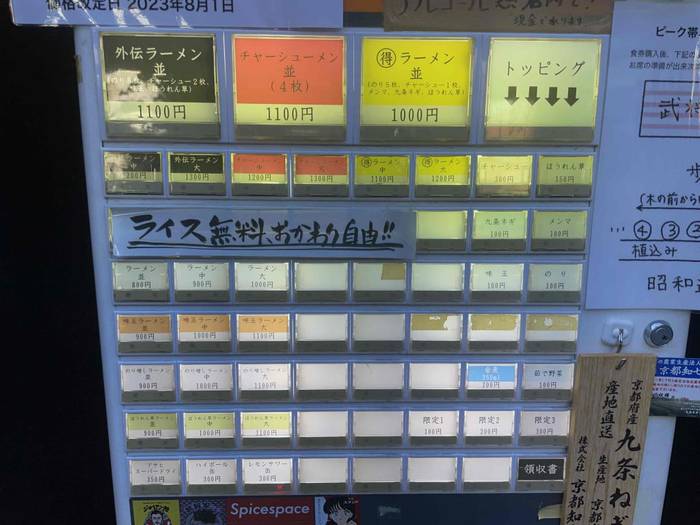 価格改定日 2023年8月1日
アルコール
現金で承ります
ピーク帯
食券購入後、下記の
お席の準備が出来次
外伝ラーメン
並
1100円
チャーシューメン
並
(4枚)
1100円
得ラーメン
並
(のり5枚、チャーシュー1枚、
メンマ、九条ネギ、ほうれん草)
1000円
トッピング
↓↓↓↓
外伝ラーメン
大
1300円
1200円
1300円
得ラーメン
中
1100円
得ラーメン
大
1200円
チャーシュー
300円
ほうれん草
150円
ライス無料、おかわり自由!!
九条ネギ
100円
メンマ
100円
←木の前から
… ④ ③ ②
植込み
昭和
ラーメン
並
800円
ラーメン
中
900円
ラーメン
大
1000円
味玉
100円
のり
100円
味玉ラーメン
並
900円
味玉ラーメン
中
1000円
味玉ラーメン
大
1100円
のり増しラーメン
並
900円
のり増しラーメン
中
1000円
のり増しラーメン
大
1100円
200円
茹で野菜
100円
ほうれん草ラーメン
並
900円
ほうれん草ラーメン
中
1000円
ほうれん草ラーメン
大
1100円
限定1
100円
限定2
200円
限定3
300円
アサヒ
スーパードライ
350円
ハイボール
缶
300円
レモンサワー
缶
300円
領収書
京都府産
九条ねぎ
産地直送
生産地
京都
株式会社
京都知
の農業生産法人
京都知七
Spicespace